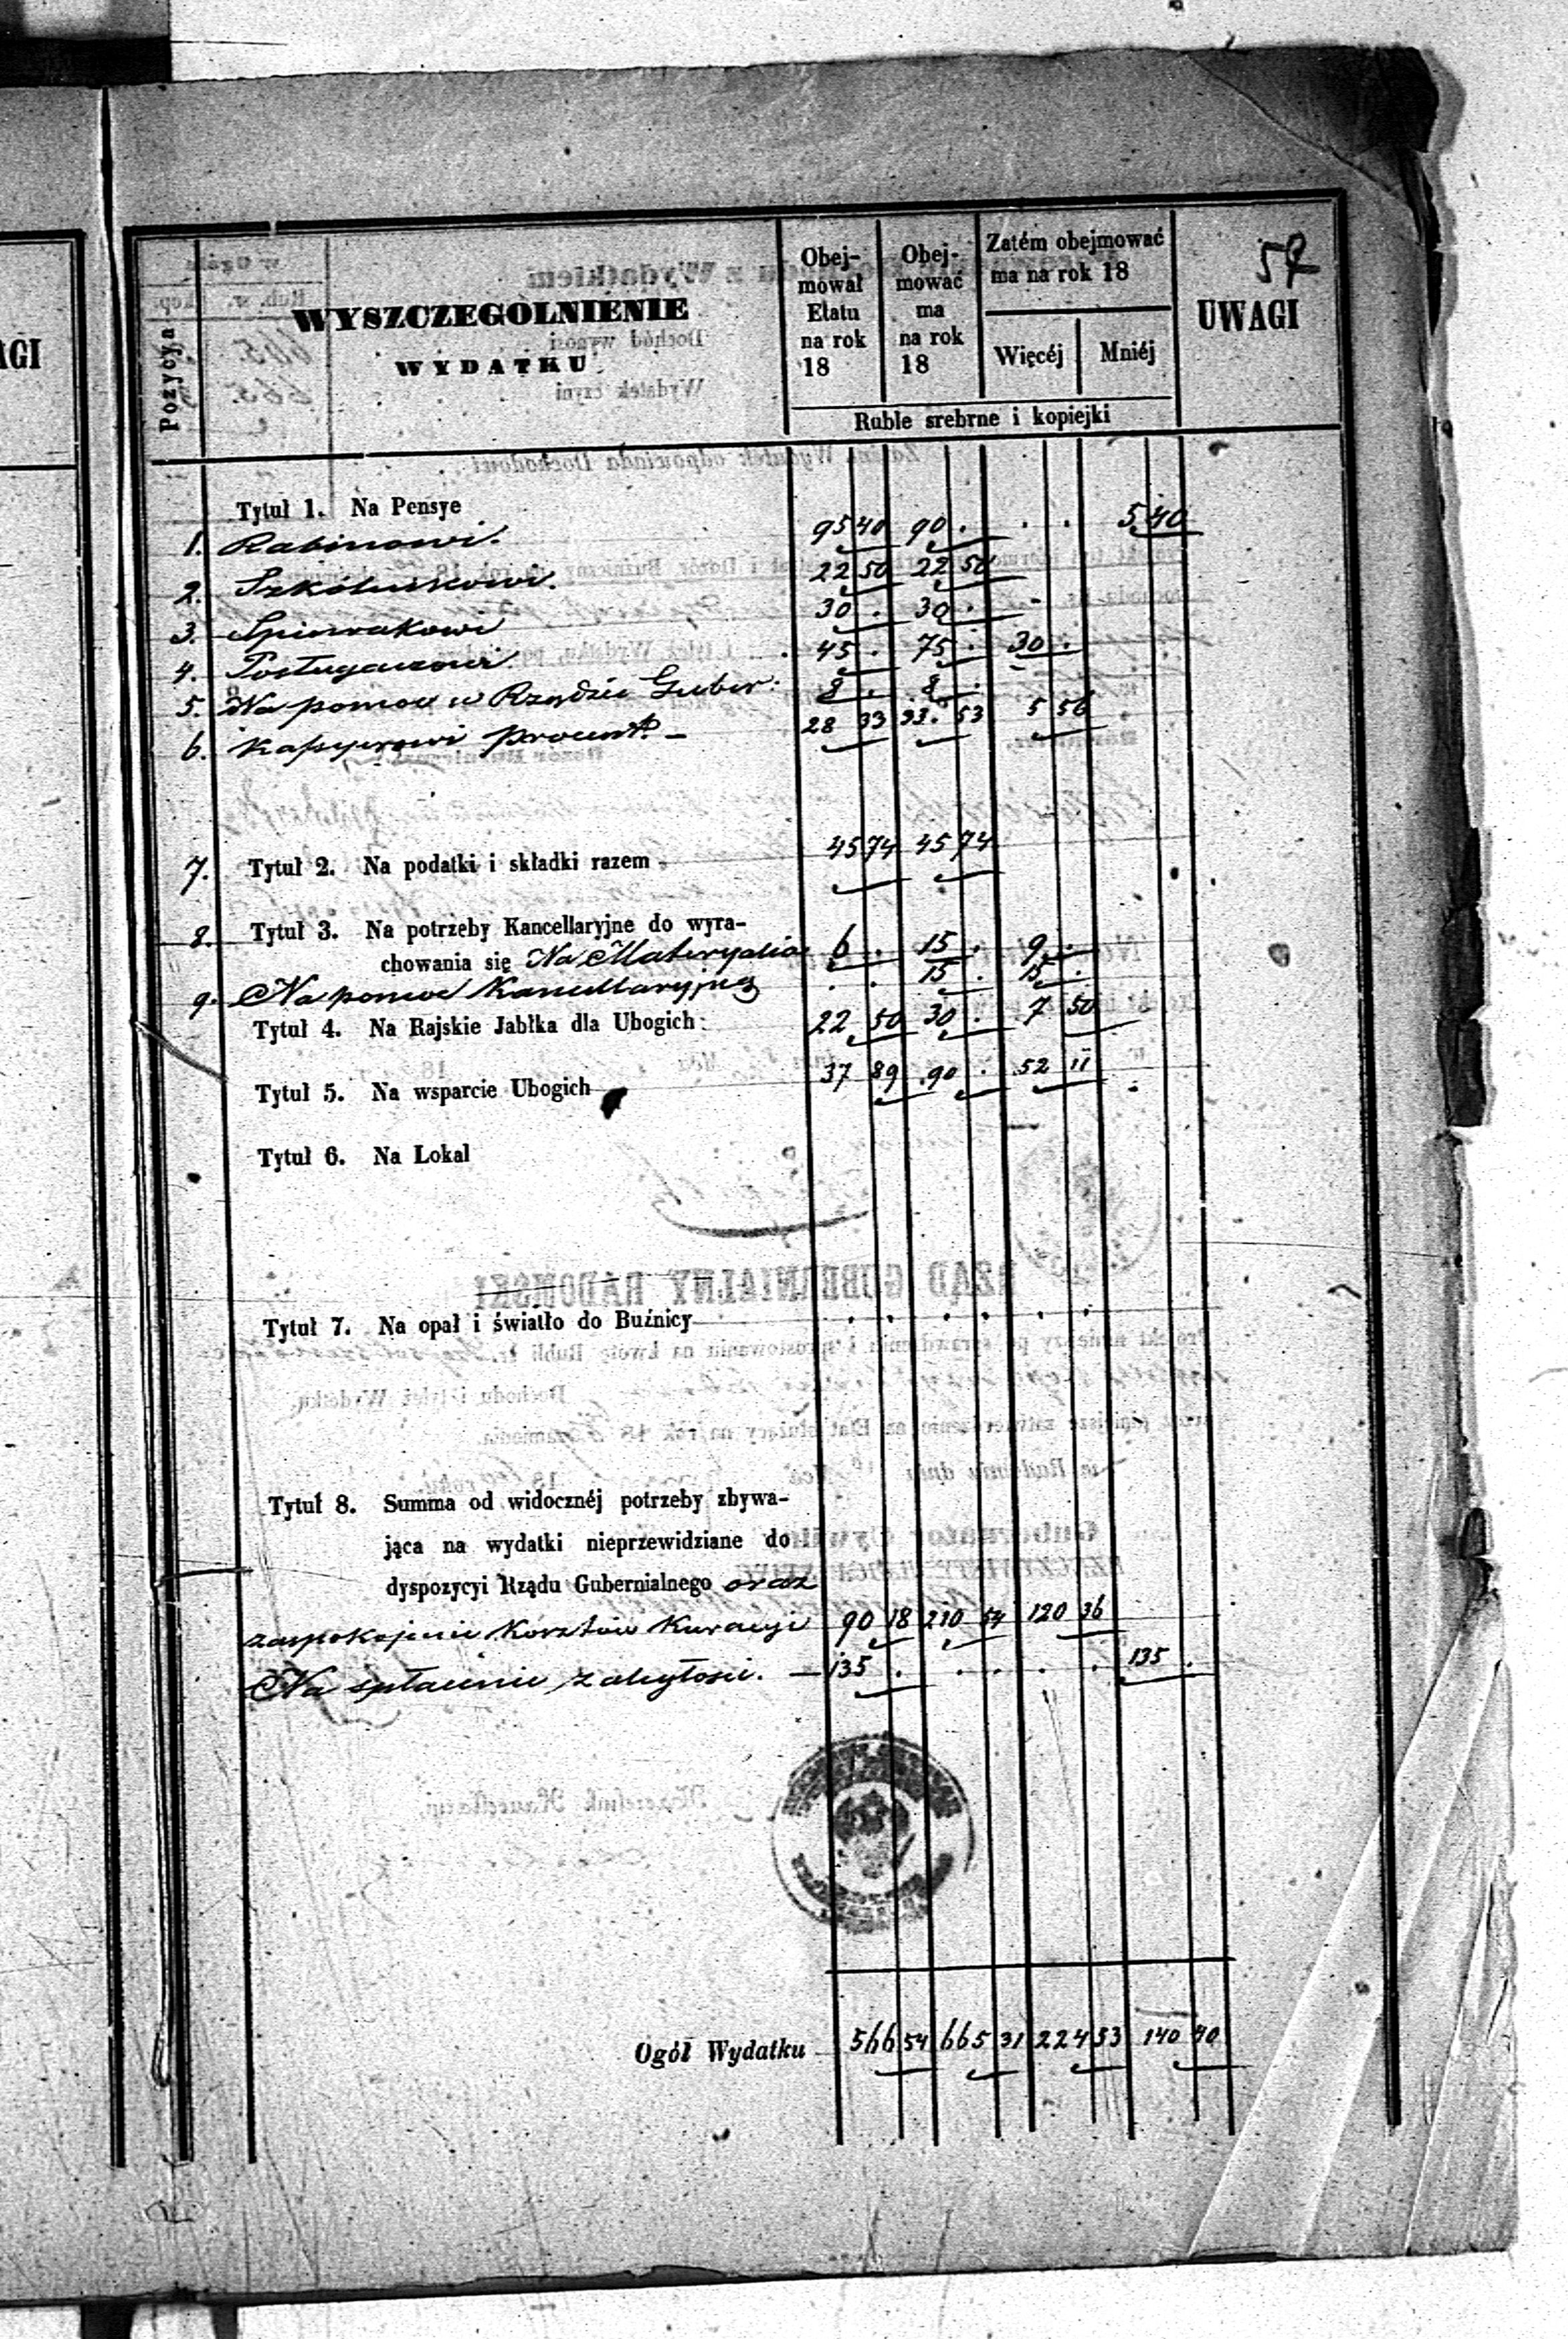 57
Pozycya
WYSZCZEGÓLNIENIE
WYDATKU
Obej- mował Etatu na rok 18
Obej- mować ma na rok 18
Zatém obejmować ma na rok 18
Więcéj Mniéj
UWAGI
Ruble srebrne i kopiejki
Tytuł 1. Na Pensye
1. Rabinowi. 95 40 90 . . . 5 40
2. Szkólnikowi. 22 50 22 50
3. Spiewakowi 30 . 30 . -
4. Posługaczowi 45 . 75 . 30 .
5. Na pomoc w Rządzie Guber: 8 . 8 .
6. Kassyerowi procent. - 28 33 33. 53 5 56
7. Tytuł 2. Na podatki i składki razem - 45 74 45 74
8. Tytuł 3. Na potrzeby Kancellaryjne do wyra-
chowania się Na Materyalia 6 . 15 . 9 .
9. Na pomoc Kancellaryjną . . 15 . 15 .
Tytuł 4. Na Rajskie Jabłka dla Ubogich 22 50 30 . 7 50
Tytuł 5. Na wsparcie Ubogich 37 89 90 . 52 11 -
Tytuł 6. Na Lokal
Tytuł 7. Na opał i światło do Buźnicy . . . . . .
Tytuł 8. Summa od widocznéj potrzeby zbywa-
jąca na wydatki nieprzewidziane do
dyspozycyi Rządu Gubernialnego oraz
zaspokojenie Kosztów Kuracyi 90 18 210 54 120 36
Na spłacenie zaległosci. - 135 . . . . . 135 .
Ogół Wydatku 566 54 665 31 224 53 140 40
AGI